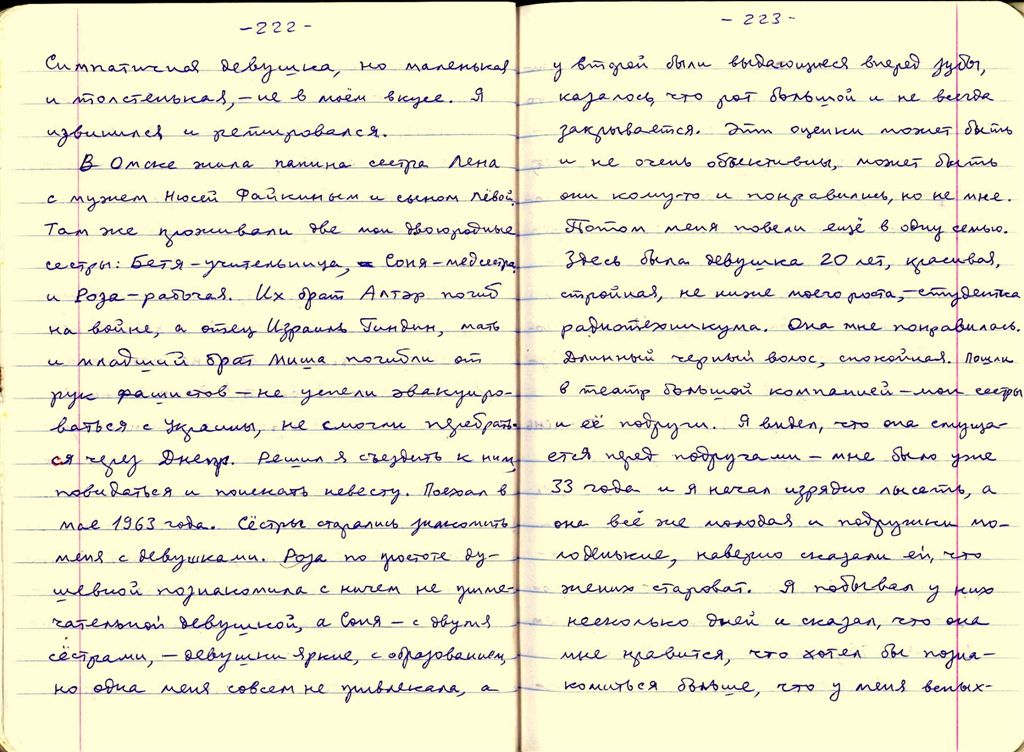 -222-
Симпатичная девушка, но маленькая
и толстенькая, – не в моём вкусе. Я
извинился и ретировался.
В Омске жила папина сестра Лена
с мужем Нюсей Файкиным и сыном Лёвой.
Там же проживали две мои двоюродные
сестры: Бетя – учительница, Соня – медсестра,
и Роза – рабочая. Их брат Алтэр погиб
на войне, а отец Израиль Гиндин, мать
и младший брат Миша погибли от
рук фашистов – не успели эвакуиро-
ваться с Украины, не смогли перебрать-
ся через Днепр. Решил я съездить к ним,
повидаться и поискать невесту. Поехал в
мае 1963 года. Сёстры старались знакомить
меня с девушками. Роза по простоте ду-
шевной познакомила с ничем не приме-
чательной девушкой, а Соня – с двумя
сёстрами, – девушки яркие, с образованием,
но одна меня совсем не привлекала, а
- 223-
у второй были выдающиеся вперед зубы,
казалось, что рот большой и не всегда
закрывается. Эти оценки может быть
и не очень объективны, может быть
они кому-то и понравились, но не мне.
Потом меня повели ещё в одну семью.
Здесь была девушка 20 лет, красивая,
стройная, не ниже моего роста, – студентка
радиотехникума. Она мне понравилась.
Длинный черный волос, спокойная. Пошли
в театр большой компанией – мои сестры
и её подруги. Я видел, что она смуща-
ется перед подругами – мне было уже
33 года и я начал изрядно лысеть, а
она всё же молодая и подружки мо-
лоденькие, наверно сказали ей, что
жених староват. Я побывал у них
несколько дней и сказал, что она
мне нравится, что хотел бы позна-
комиться больше, что у меня вспых-